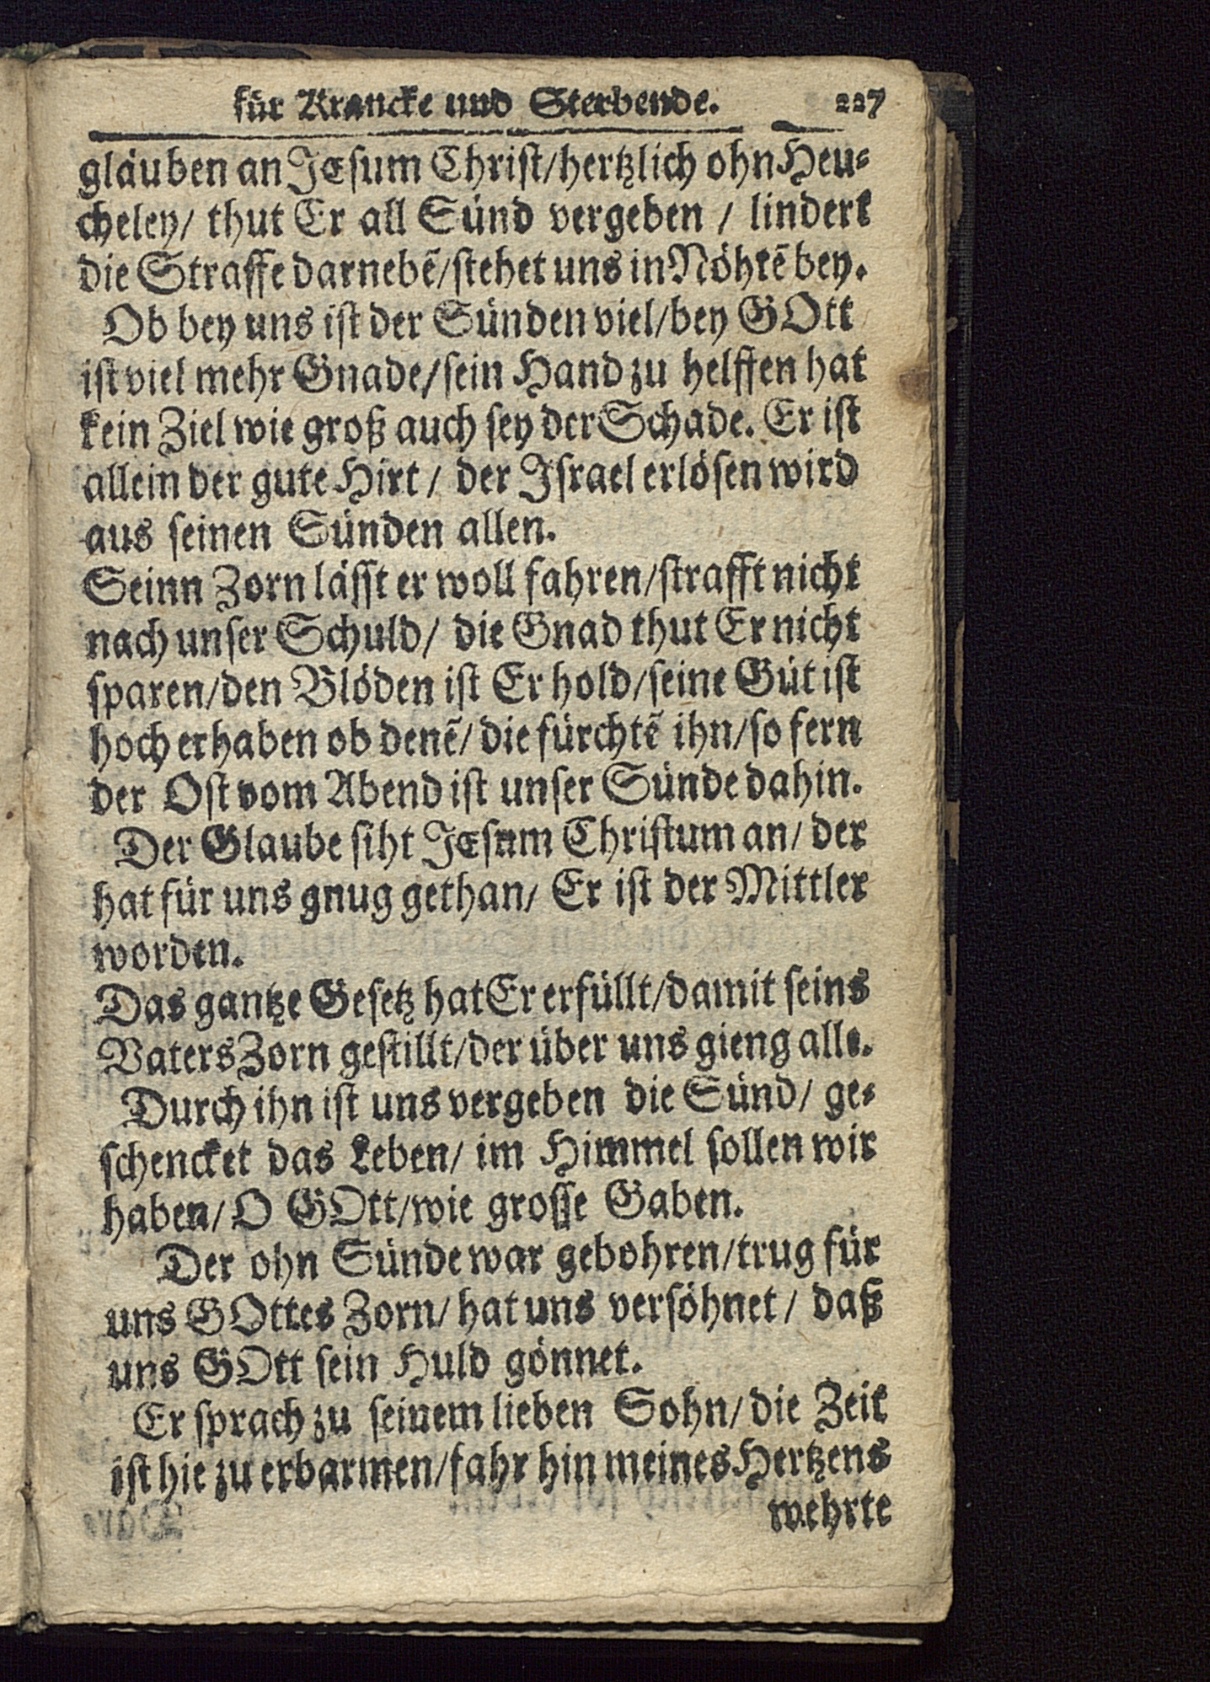 für Krancke und Sterbende. 227
gläuben an JEsum Christ/hertzlich ohn Heu-
cheley/ thut Er all Sünd vergeben / lindert
die Straffe darnebẽ/stehet uns in Nöhtẽ bey.
Ob bey uns ist der Sünden viel/bey GOtt
ist viel mehr Gnade/sein Hand zu helffen hat
kein Ziel wie groß auch sey der Schade. Er ist
allein der gute Hirt/ der Israel erlösen wird
aus seinen Sünden allen.
Seinn Zorn lässt er woll fahren/strafft nicht
nach unser Schuld/ die Gnad thut Er nicht
sparen/den Blöden ist Er hold/seine Güt ist
hoch erhaben ob denẽ/ die fürchtẽ ihn/so fern
der Ost vom Abend ist unser Sünde dahin.
Der Glaube siht JEsum Christum an/ der
hat für uns gnug gethan/ Er ist der Mittler
worden.
Das gantze Gesetz hat Er erfüllt/damit seins
Vaters Zorn gestillt/der über uns gieng alle.
Durch ihn ist uns vergeben die Sünd/ ge-
schencket das Leben/ im Himmel sollen wir
haben/ O GOtt/wie grosse Gaben.
Der ohn Sünde war gebohren/trug für
uns GOttes Zorn/ hat uns versöhnet / daß
uns GOtt sein Huld gönnet.
Er sprach zu seinem lieben Sohn/ die Zeit
ist hie zu erbarmen/fahr hin meines Hertzens
wehrte